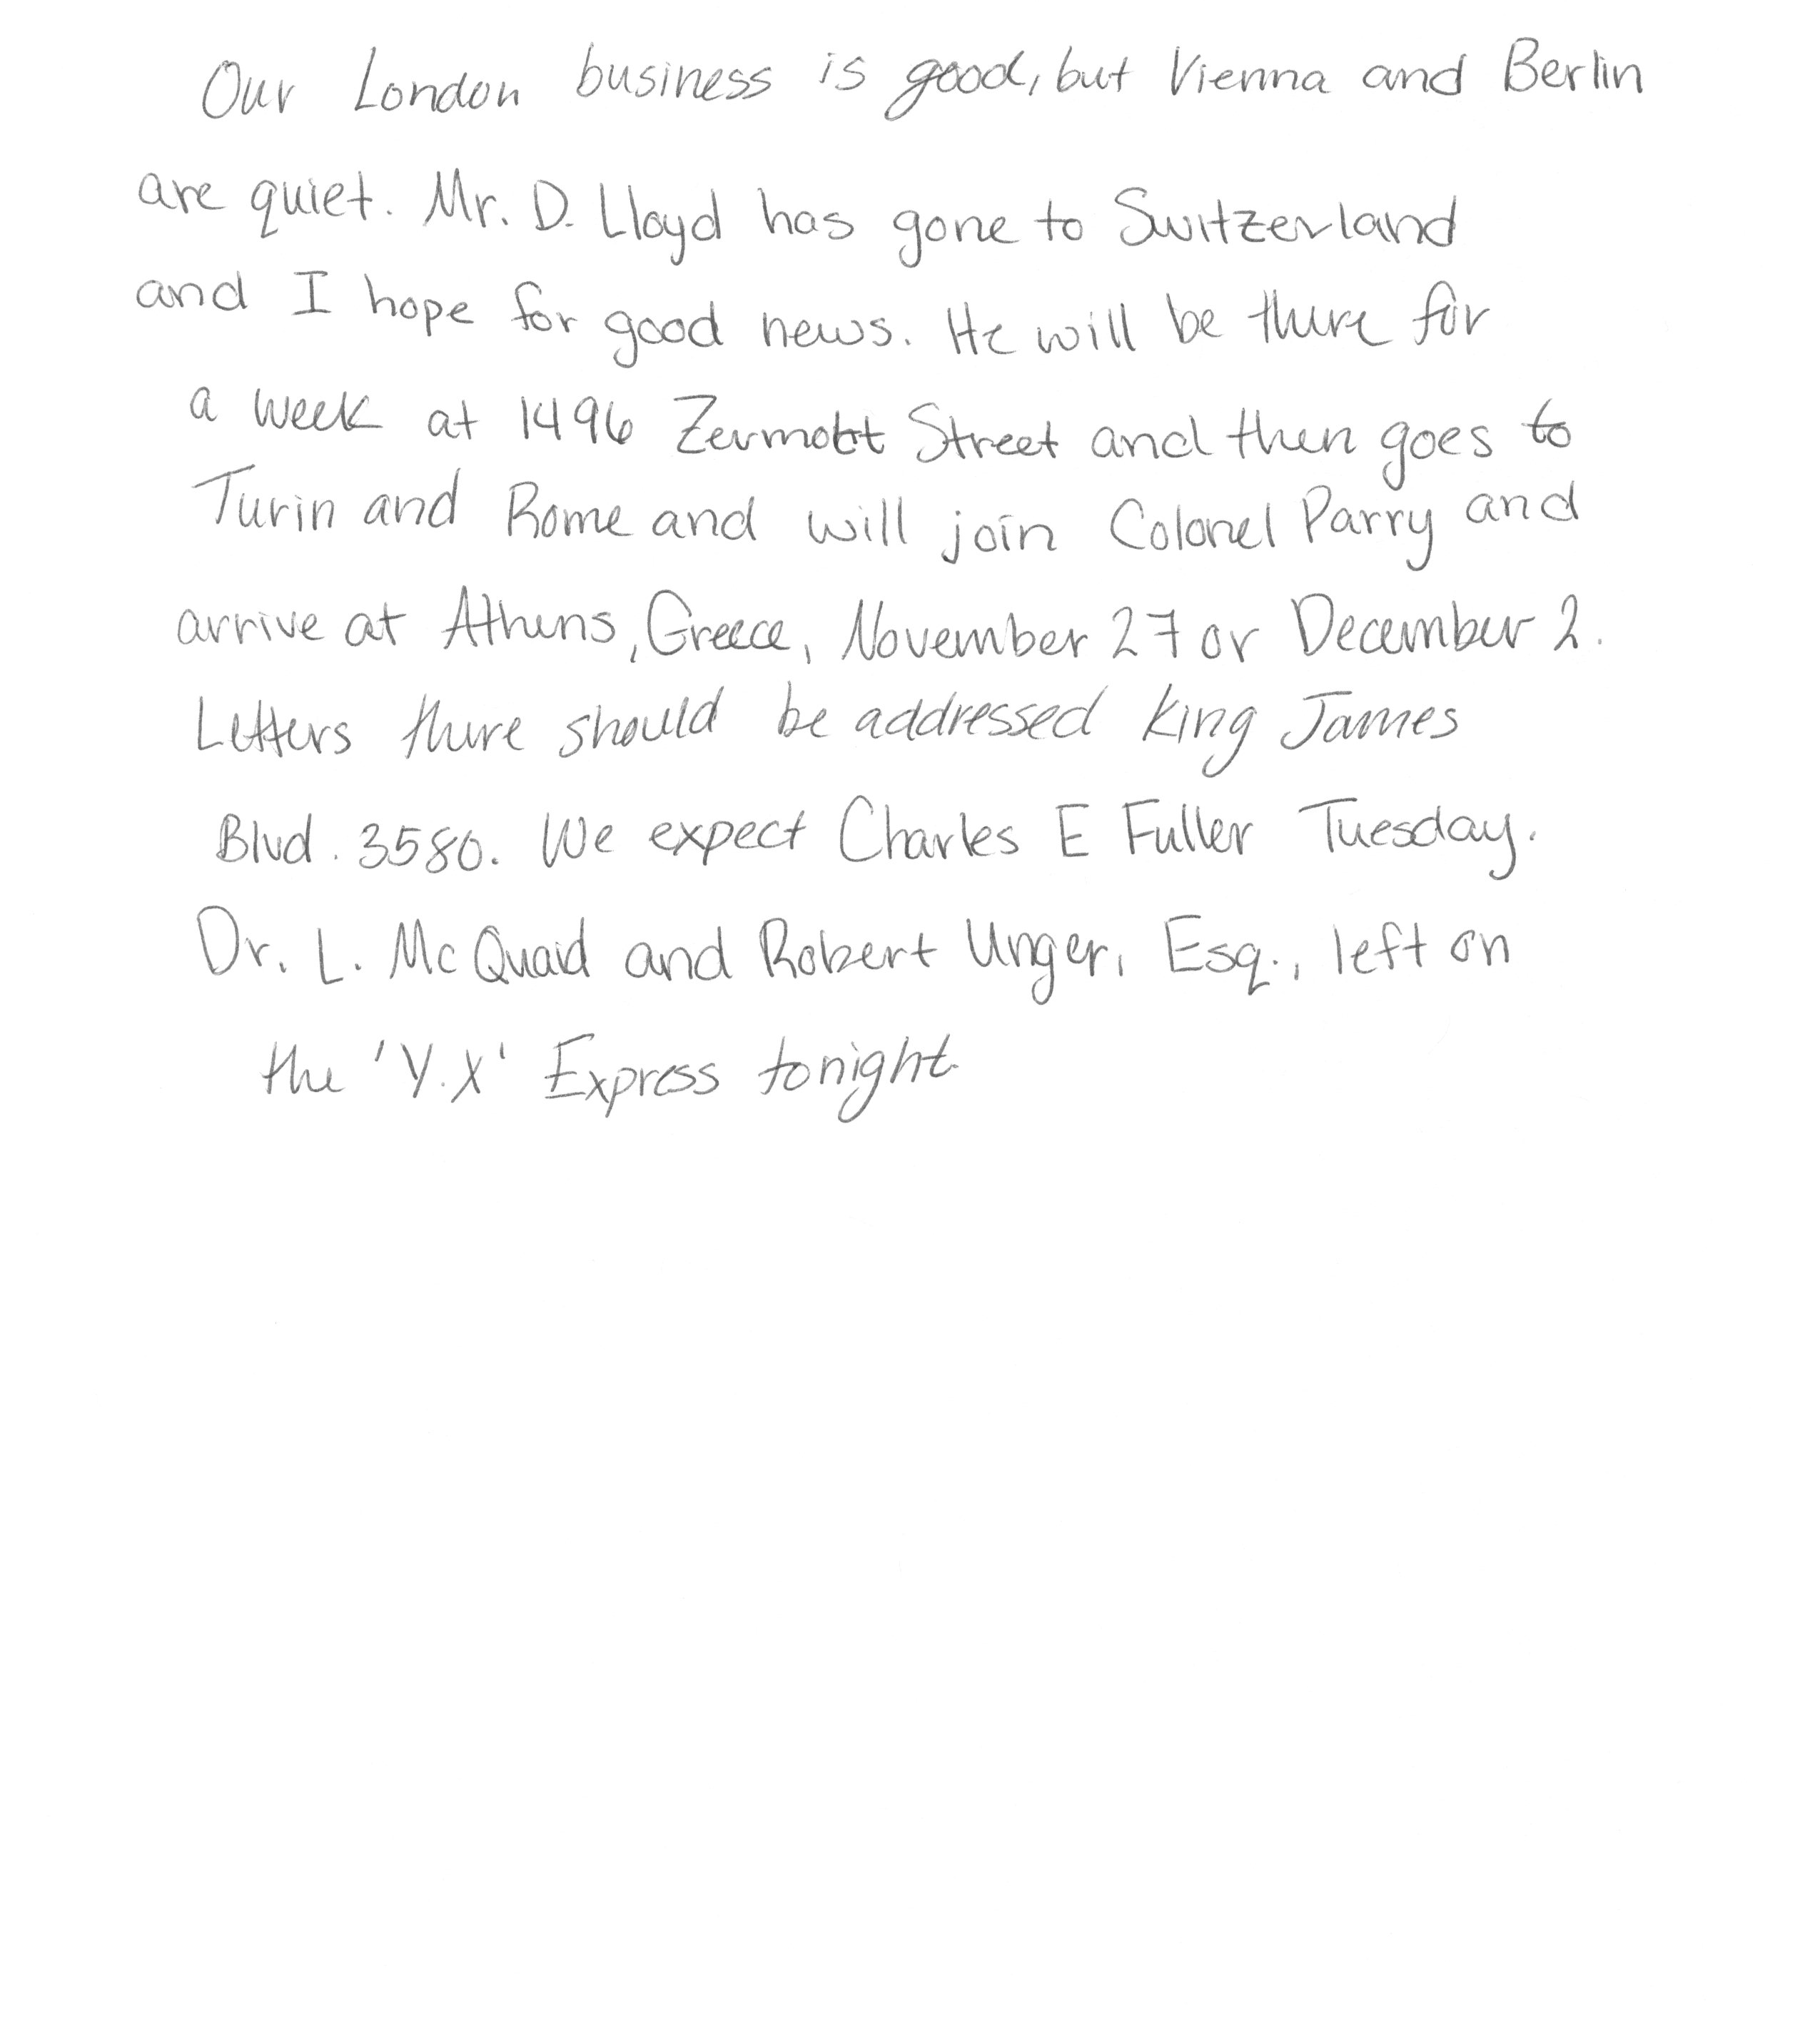 Our London business is good, but Vienna and Berlin
are quiet. Mr. D. Lloyd has gone to Switzerland
and I hope for good news. He will be there for
a week at 1496 Zermott Street and then goes to
Turin and Rome and will join Colonel Parry and
arrive at Athens, Greece, November 27 or December 2.
Letters there should be addressed King James
Blvd. 3580. We expect Charles E Fuller Tuesday.
Dr. L. McQuaid and Robert Unger, Esq., left on
the 'Y.X' Express tonight.